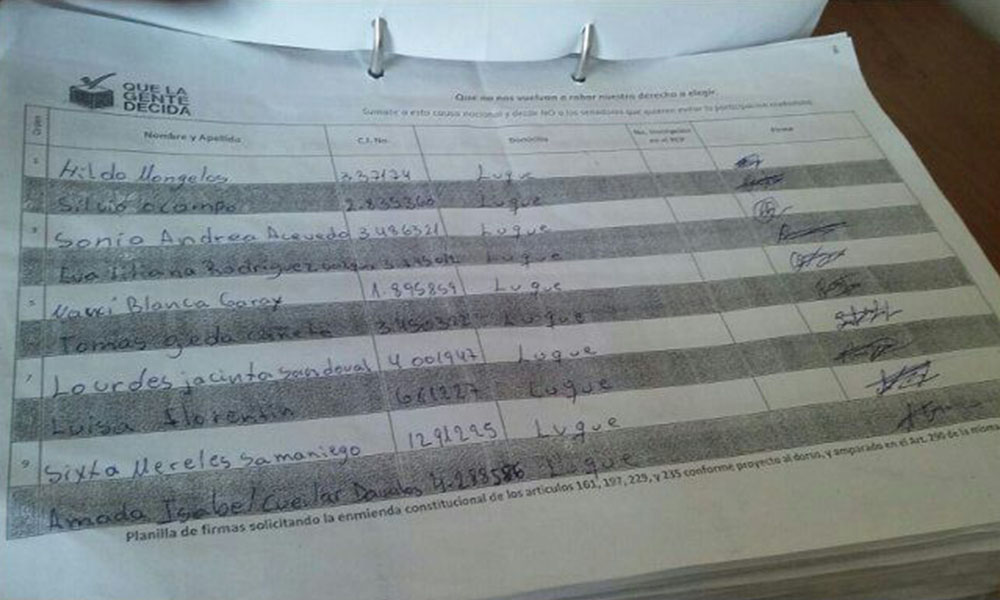 QUE LA
GENTE
DECIDA
Que no nos vuelvan a robar nuestro derecho a elegir.
Sumate a esta causa nacional y decile NO a los senadores que quieren evitar la participación ciudadana
Orden Nombre y Apellido C.I. No. Domicilio No. Inscripción en el RCP Firma
1 Hildo Mongelos 337174 Luque
Silvio Ocampo 2.835360 Luque
3 Sonia Andrea Acevedo 3486321 Luque
Eva Liliana Rodriguez Luque
5 Blanca Garay 1.895859 Luque
Tomas Ojeda Cañete Luque
7 Lourdes jacinta Sandoval 4 001947 Luque
Luisa florentin 661227 Luque
9 Sixta Mereles Samaniego 1291295 Luque
Amada Isabel Cuellar Davalos 4.288586 Luque
Planilla de firmas solicitando la enmienda constitucional de los articulos 161, 197, 229, y 235 conforme proyecto al dorso, y amparado en el Art. 290 de la misma